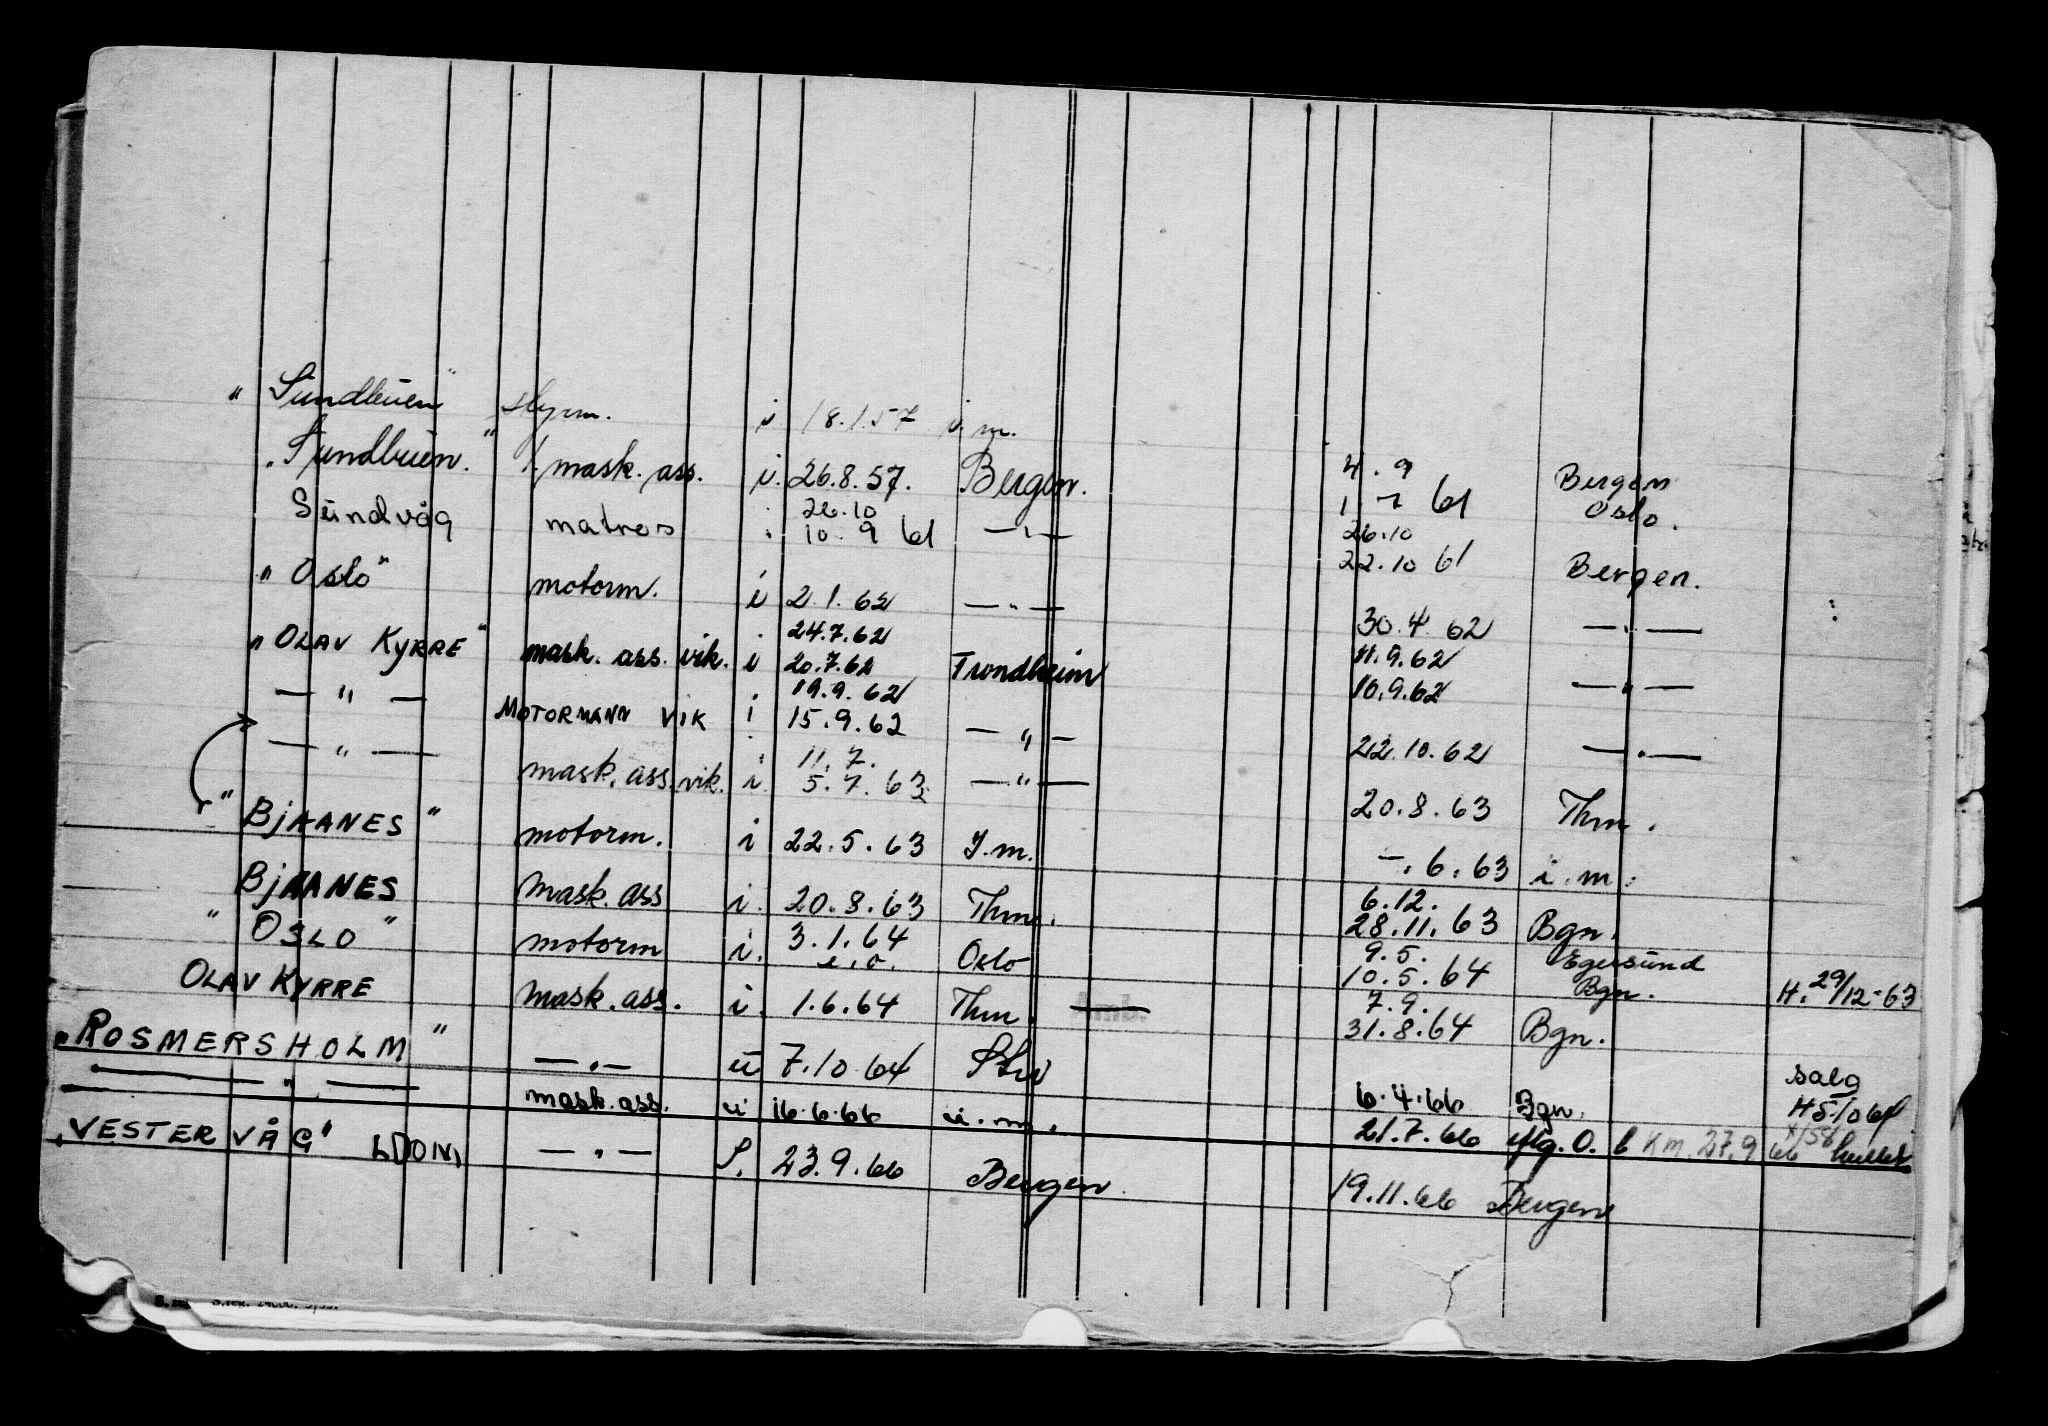 "Sundbuen" styrm. i 18.1.57 i.m.
"Sundbuen." 1. mask. ass. i. 26.8.57. Bergen. 4.9 Bergen
26.10 1 - 7 61 Oslo.
Sundvåg matros i 10.9 61 —"— 26.10
22.10 61 Bergen.
"Oslo" motorm. i 2.1.62 —"— 30.4.62 —"—
24.7.62 11.9.62
"OLAV KYRRE" mask. ass. vik. i 20.7.62 Trondheim 10.9.62 —"—
19.9.62
—"— MOTORMANN VIK i 15.9.62 —"— 22.10.62 —"—
11.7.
—"— mask. ass. vik. i 5.7.63 —"— 20.8.63 Thm.
"BJAANES" motorm. i 22.5.63 I.m. —.6.63 i.m.
6.12.
BJAANES Mask. ass i. 20.8.63 Thm. 28.11.63 Bgn.
3.1.64 9.5. Egersund
"OSLO" motorm i. i.o. Oslo 10.5.64 Bgn. H. 29/12-63
7.9.
OLAV KYRRE Mask. ass. i. 1.6.64 Thm. 31.8.64 Bgn.
"ROSMERSHOLM" —"— u 7.10.64 6.4.66 Bgn. salg
—"— mask. ass. u 16.6.66 u.m. 21.7.66 iflg. O. b KM 27.9 66
"VESTERVÅG" —"— S. 23.9.66 Bergen 19.11.66 Bergen